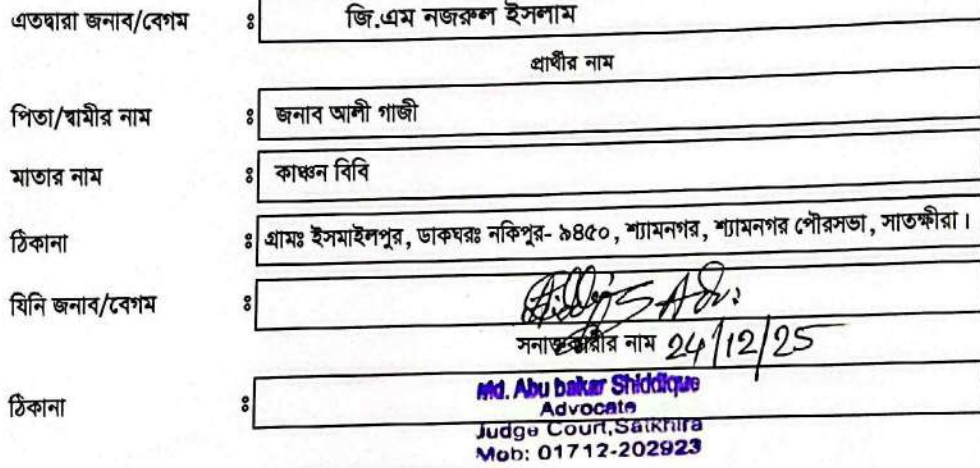 এতদ্বারা জনাব/বেগম ঃ জি.এম নজরুল ইসলাম
প্রার্থীর নাম
পিতা/স্বামীর নাম ঃ জনাব আলী গাজী
মাতার নাম ঃ কাঞ্চন বিবি
ঠিকানা ঃ গ্রামঃ ইসমাইলপুর, ডাকঘরঃ নকিপুর- ৯৪৫০, শ্যামনগর, শ্যামনগর পৌরসভা, সাতক্ষীরা।
যিনি জনাব/বেগম ঃ
সনাক্তকারীর নাম 24/12/25
ঠিকানা ঃ Md. Abu bakar Shiddique
Advocate
Judge Court, Satkhira
Mob: 01712-202923